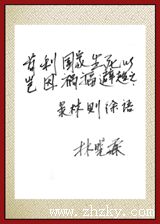 苟利国家生死以
岂因祸福避趋之
录林则徐语
www.zhzky.com